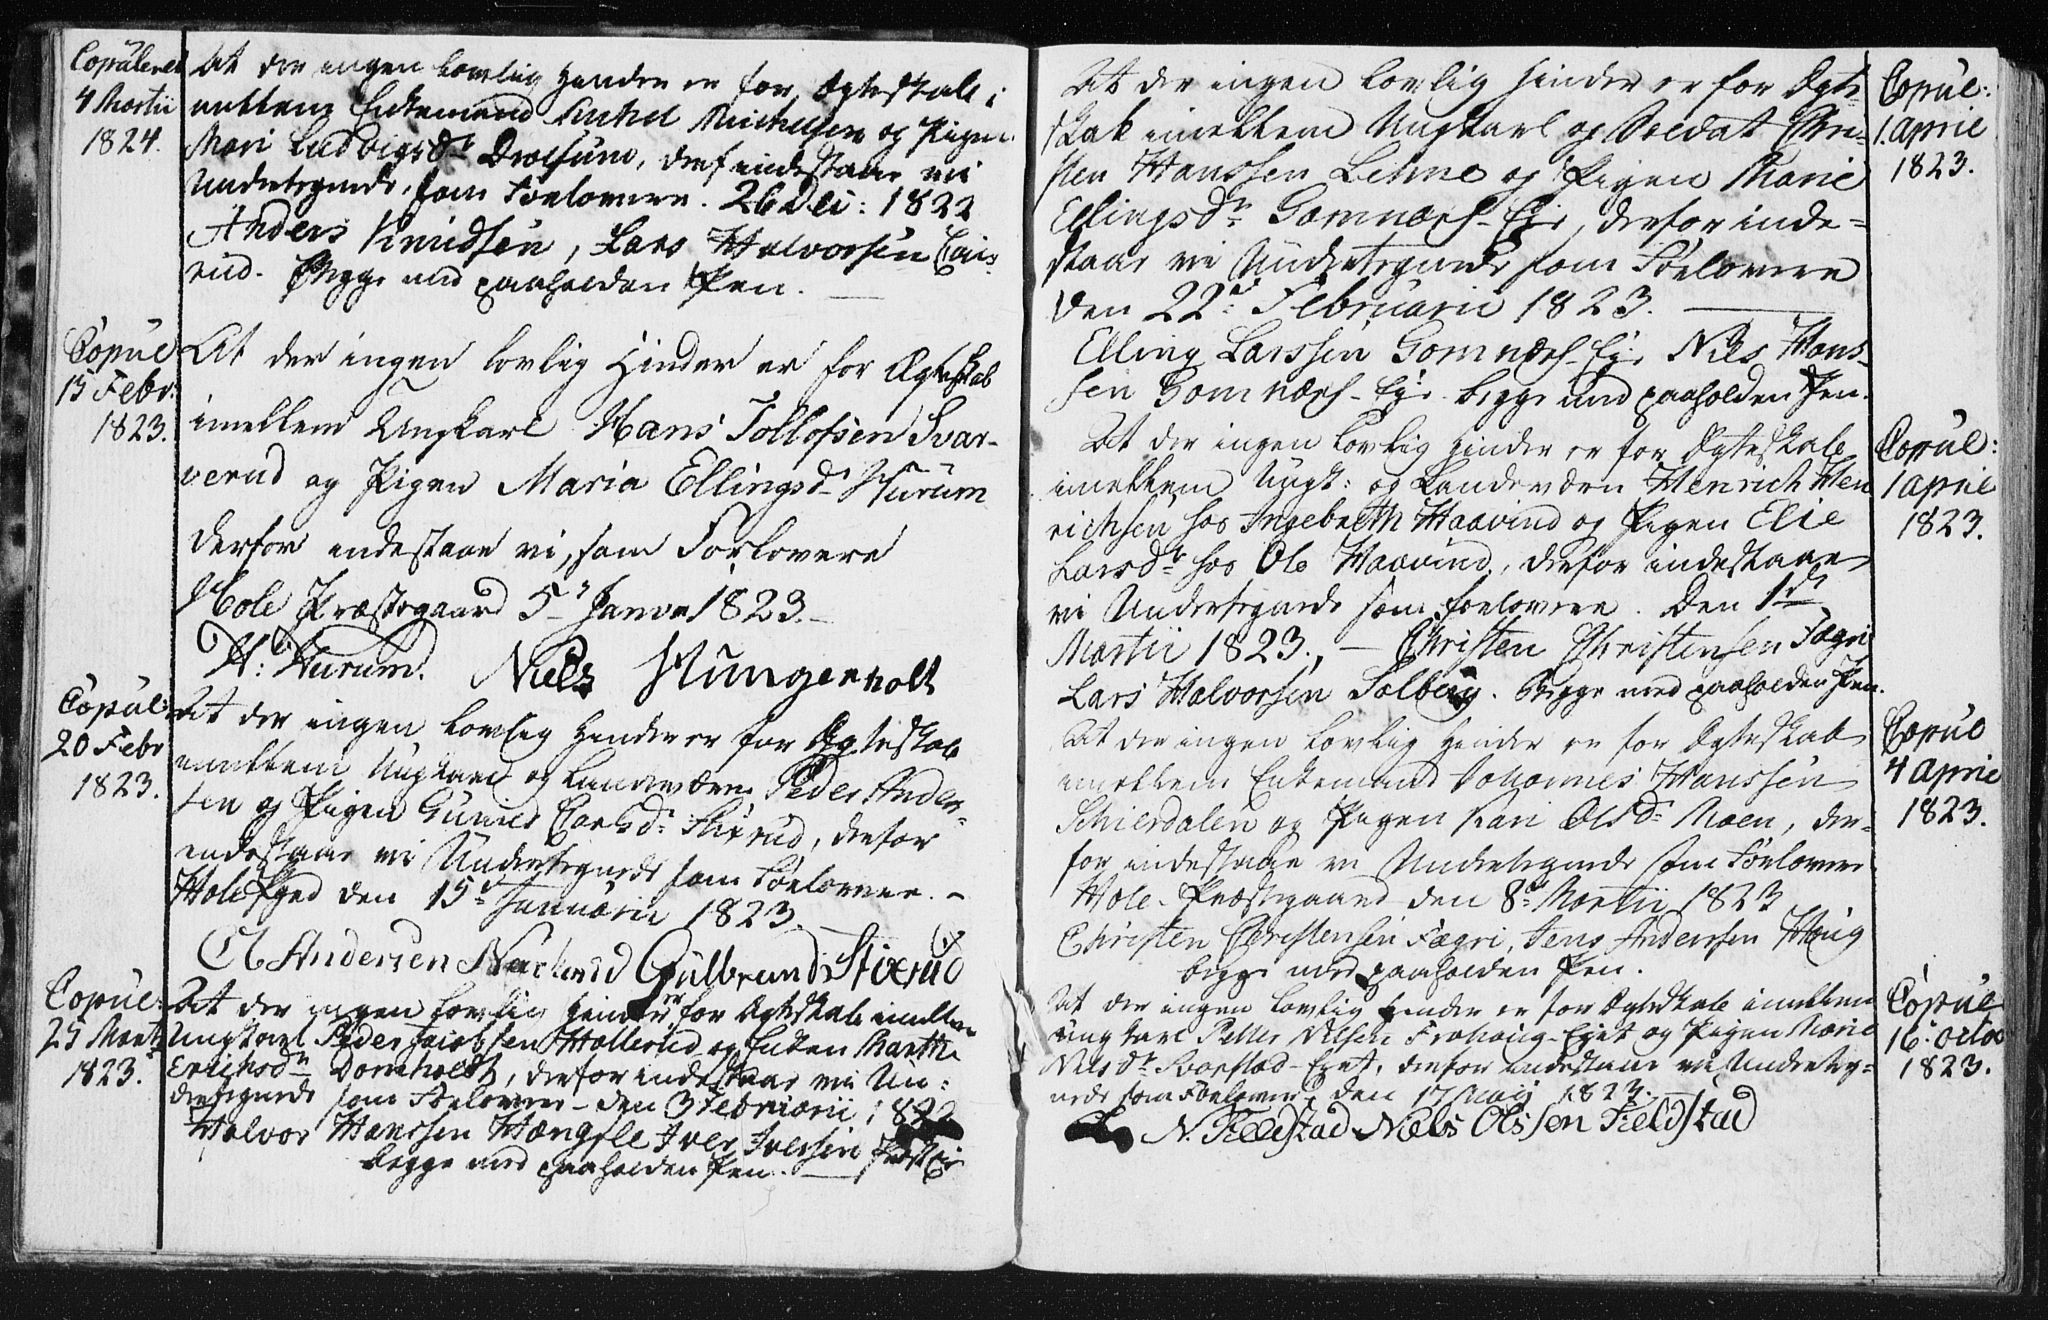 Copuleret
4 Martii
1824.
At der ingen lovlig Hinder er for Ægteskab i
mellem Enkemand Michel Michelsen og Pigen
Mari Ludvigsdr. Drolsum, derf. indestaae vi
Undertegnede, som Forlovere. 26 Dec: 1822
Anders Knudsen, Lars Halvorsen
rud. Begge med paaholden Pen.
Copul
15 Febr:
1823.
At der ingen lovlig Hinder er for Ægteskab
imellem Ungkarl Hans Tollofsen Svar-
verud og Pigen Maria Ellingsdr. Hurum
derfor indestaae vi, som Forlovere
Hole Præstegaard 5t Janvr 1823.
H: Hurum. Niels Hungerholt
Copul:
20 Febr
1823.
At der ingen lovlig Hinder er for Ægteskab
imellem Ungkarl og Landeværn Peder Ander-
sen og Pigen Gunild Carlsdr. Stixrud, derfor
indestaae vi Undertegnede som Forlovere. -
Hole Pgrd den 15de Januarii 1823.
Ol Andersen Gulbrand Stixrud
Copul:
25 Martii
1823.
At der ingen lovlig Hinder er for Ægteskab imellem
Ungkarl Peder Jacobsen Hollerud og Enken Marthe
Erichsdr. Domholdt, derfor indestaae vi Un-
dertegnede som Forlovere - den 3 Februarii 1822
Halvor Hanssen Hængsle Iver Iversen
begge med paaholden Pen. -
At der ingen lovlig Hinder er for Ægte-
skab imellem Ungkarl og Soldat Chri-
sten Hanssen Lehne og Pigen Marie
Ellingsdr. Gomnæs-Eje, derfor inde-
staae vi Undertegnede som Forlovere
den 22de Februarii 1823.
Elling Larssen Gomnæs-Eje Niels Hans-
sen Gomnæs-Eje begge med paaholden Pen.
Copul:
1. April
1823.
At der ingen lovlig Hinder er for Ægteskab
imellem Ungk: og Landeværn Henrich Hen
richsen hos Ingebreth Haavind og Pigen Elie
Larsdr. hos Ole Haavind, derfor indestaae
vi Undertegnede som Forlovere. Den 1de
Martii 1823., - Christen Christensen Fægri
Lars Halvorsen Solberg. Begge med paaholden Pen.
Copul:
1 April
1823.
At der ingen lovlig Hinder er for Ægteskab
imellem Enkemand Johannes Hanssen
Schierdalen og Pigen Kari Olsdr. Moen, der-
for indestaae vi Undertegnede som Forlovere
Hole-Præstegaard den 8de Martii 1823
Christen Christensen Fægri, Jens Anderssen Houg
begge med paaholden Pen.
Copul
4 April
1823.
At der ingen lovlig Hinder er for Ægteskab imellem
Ungkarl Petter Nilsen Frohoug-Ejet og Pigen Marie
Nielsdr. Ejet, derfor indestaae vi Underteg-
nede som Forlovere, den 17 Maij 1823.
N. Fieldstad Niels Olssen Fieldstad
Copul
16. Octob
1823.